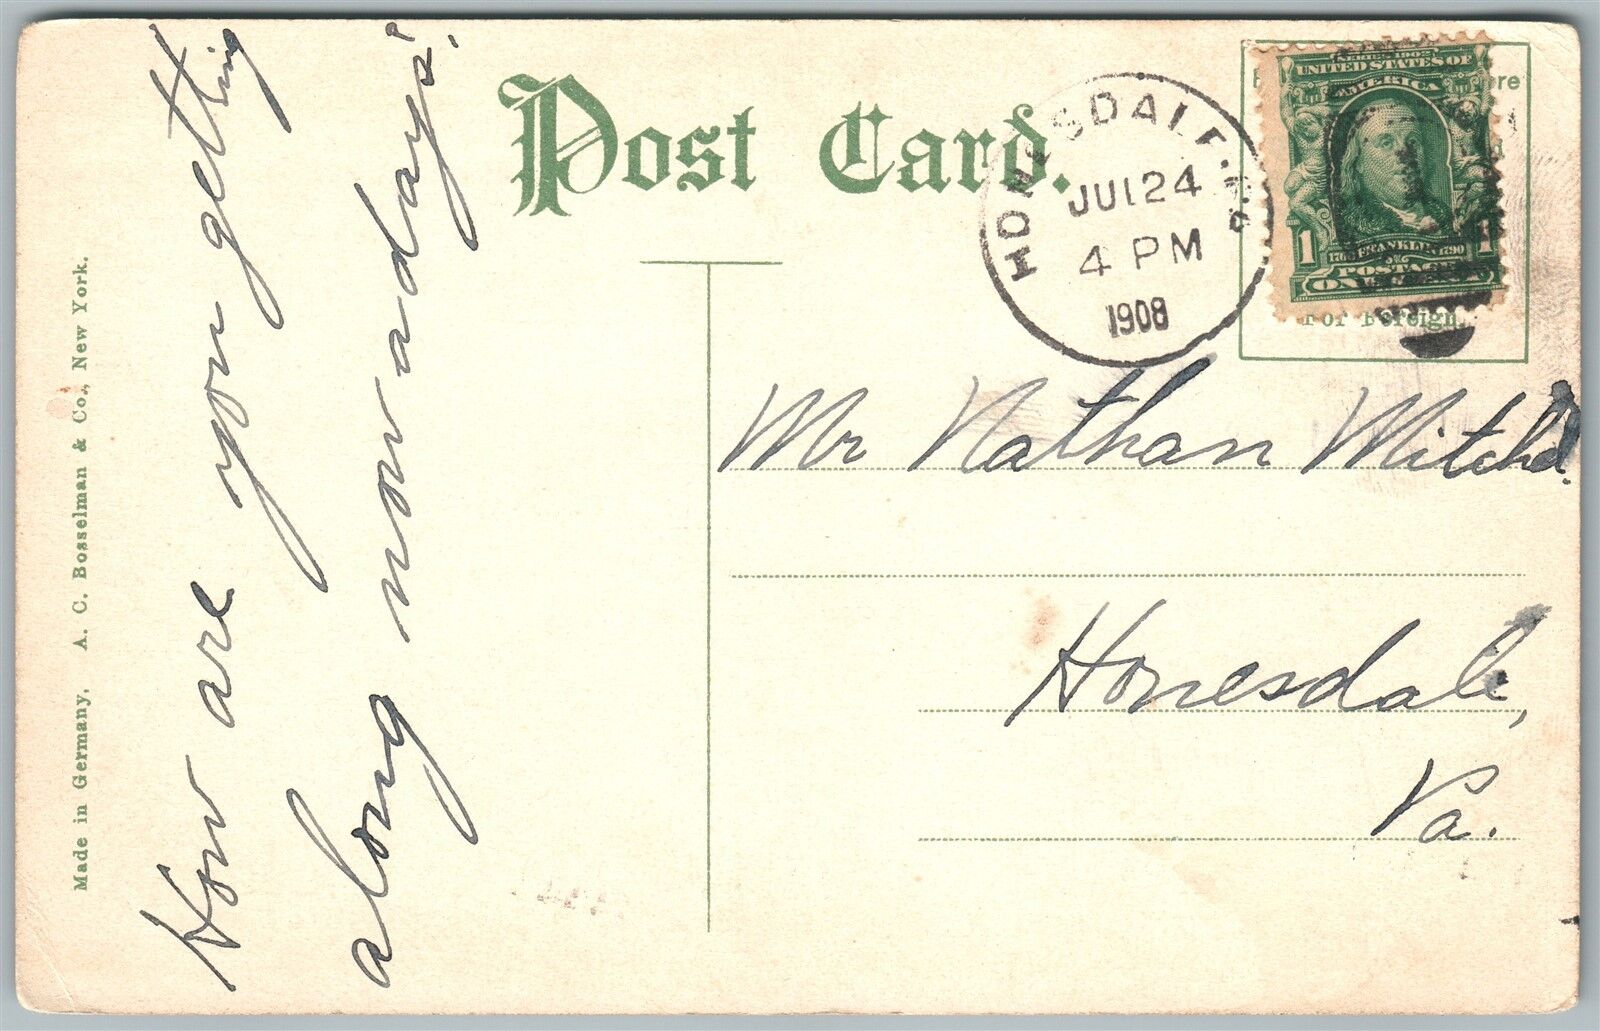 Post Card.
HONESDALE, PA.
JUL 24
4 PM
1908
SERIES 1902
UNITED STATES OF
AMERICA
1 FRANKLIN 1790 1
POSTAGE
ONE
For Foreign,
How are you getting
along now a days?
Mr Nathan Mitchel.
Honesdale,
Pa.
Made in Germany. A. C. Bosselman & Co., New York.